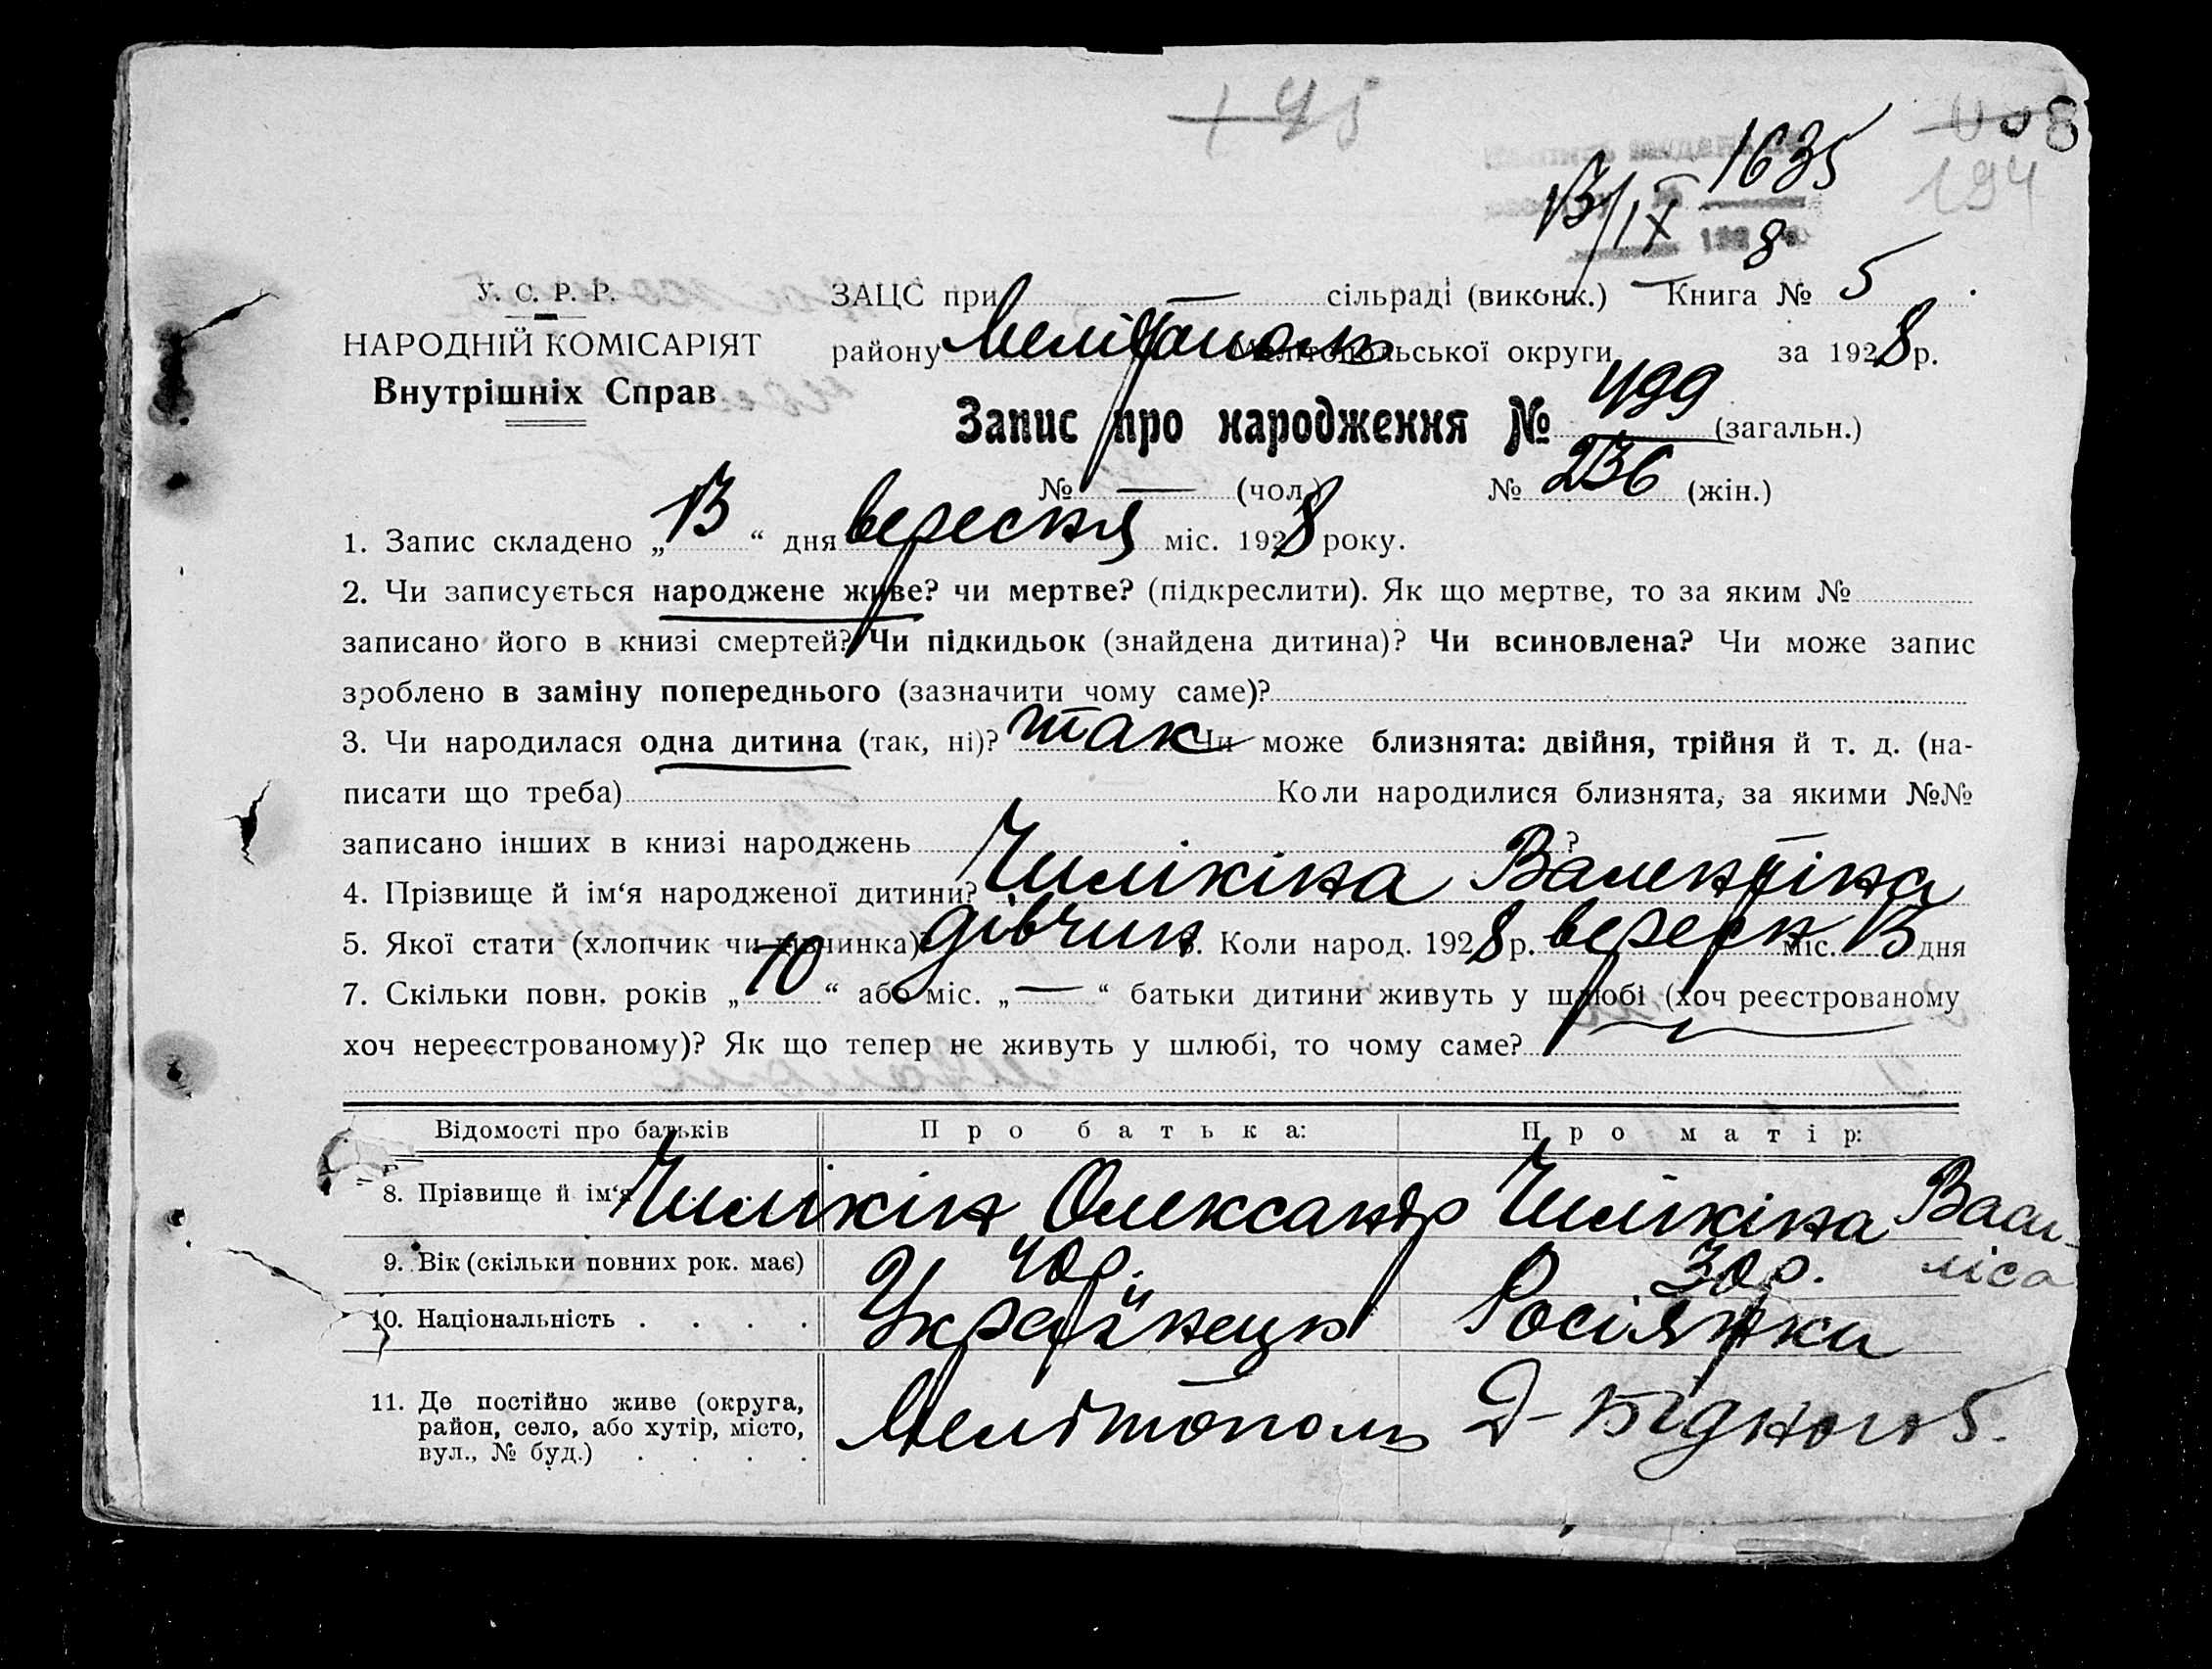 + 45
008
194
1635
13/IX 8
У. С. Р. Р.
НАРОДНІЙ КОМІСАРІЯТ
Внутрішніх Справ
ЗАЦС при — сільраді (виконк.) Книга № 5
району Мелітополь Мелітопольської округи за 1928 р.
Запис про народження № 499 (загальн.)
№ — (чол.) № 236 (жін.)
1. Запис складено „13“ дня вересня міс. 1928 року.
2. Чи записується народжене живе? чи мертве? (підкреслити). Як що мертве, то за яким №
записано його в книзі смертей? Чи підкидьок (знайдена дитина)? Чи всиновлена? Чи може запис
зроблено в заміну попереднього (зазначити чому саме)?
3. Чи народилася одна дитина (так, ні)? так Чи може близнята: двійня, трійня й т. д. (на-
писати що треба) Коли народилися близнята, за якими №№
записано інших в книзі народжень ?
4. Прізвище й ім‘я народженої дитини? Чилікіна Валентіна
5. Якої стати (хлопчик чи дівчинка)? дівчин. Коли народ. 1928 р. вересн міс. 13 дня
7. Скільки повн. років „10“ або міс. „—“ батьки дитини живуть у шлюбі (хоч реєстрованому
хоч нереєстрованому)? Як що тепер не живуть у шлюбі, то чому саме?
Відомості про батьків Про батька: Про матір:
8. Прізвище й ім‘я Чилікін Олександр Чилікіна Васи-
ліса
9. Вік (скільки повних рок. має) 40 р. 30 р.
10. Національність . . . . Українець Росіянки
11. Де постійно живе (округа,
район, село, або хутір, місто,
вул., № буд.) . . . . Мелітополь Д-Бідного 5.